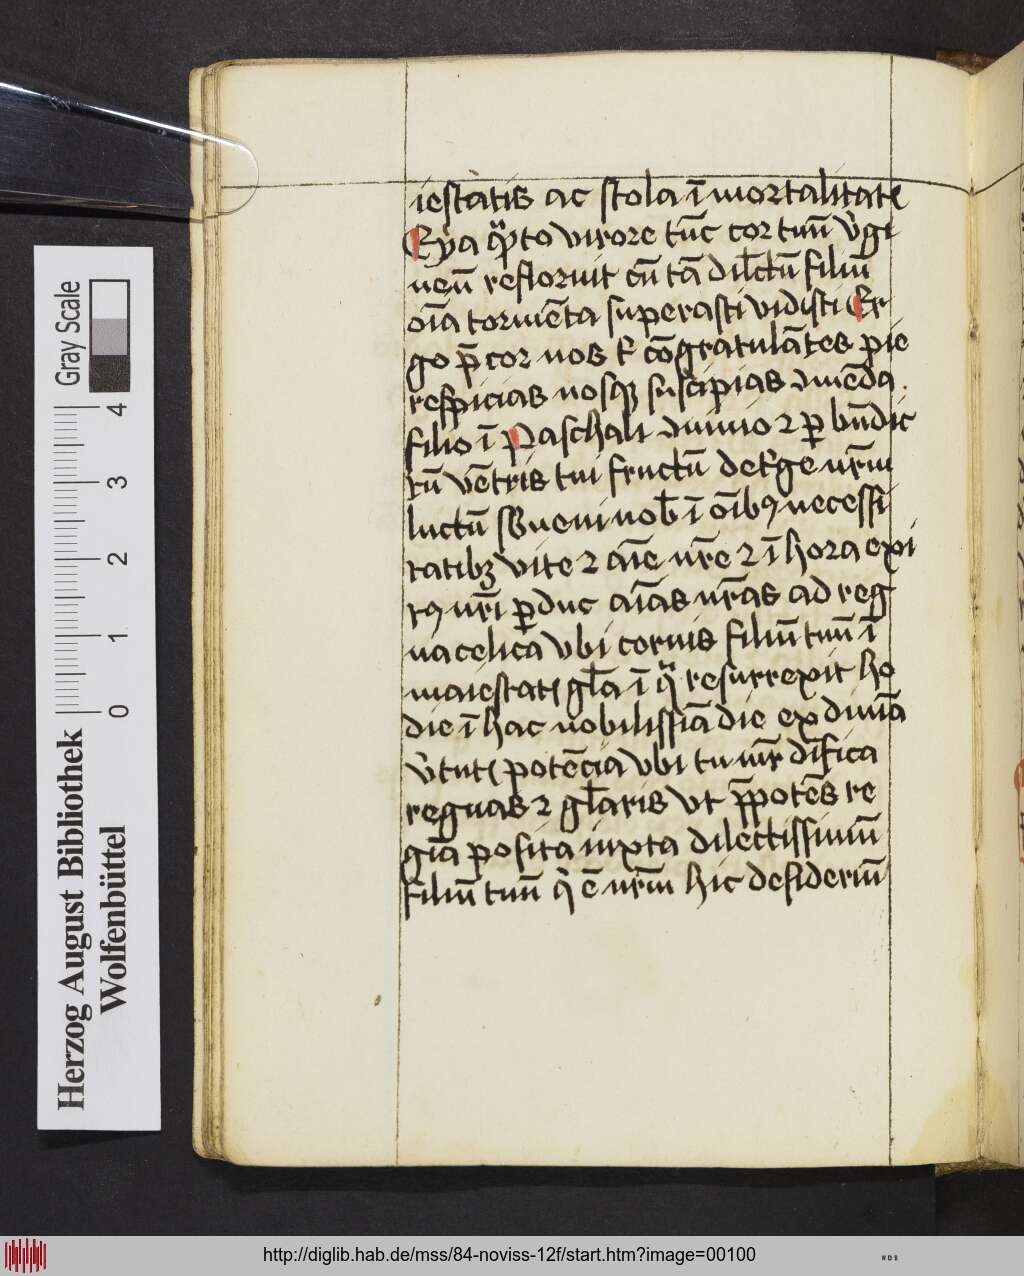 iestatis ac stola ī mortalitate
Eya qͣto virore tūc cor tuū v̓gi
neū refloruit cū tā dilc̄tū filiū
oīa tormēta superasti vidisti Er
go p̄cor nos t̓ cōgratulātes pie
respicias nosqꝫ suscipias
filio ī Paschali ⁊ ꝑ bn̄dic
tū vētris tui fructū det̓ge nr̄m
luctū Subueni nob̄ ī oībꝯ necessi
tatibꝫ vite ⁊ aīe nr̄e ⁊ ī hora exi
tꝯ nr̄i ꝑduc aīas nr̄as ad reg
na celica vbi cernis filiū tuū ī
maiestatꝭ gl̄a ī qͣ resurrexit ho
die ī hac nobilissīa die ex diuīa
v̓tutꝭ potēcia vbi tu mr̄ dīfica
regnas ⁊ gl̄aris vt p̄potēs re
gīa posita iuxta dilectissimū
filiū tuū qͥ ē nr̄m hic desideriū
Herzog August Bibliothek
Wolfenbüttel
0 1 2 3 4
Gray Scale
http://diglib.hab.de/mss/84-noviss-12f/start.htm?image=00100
WDB